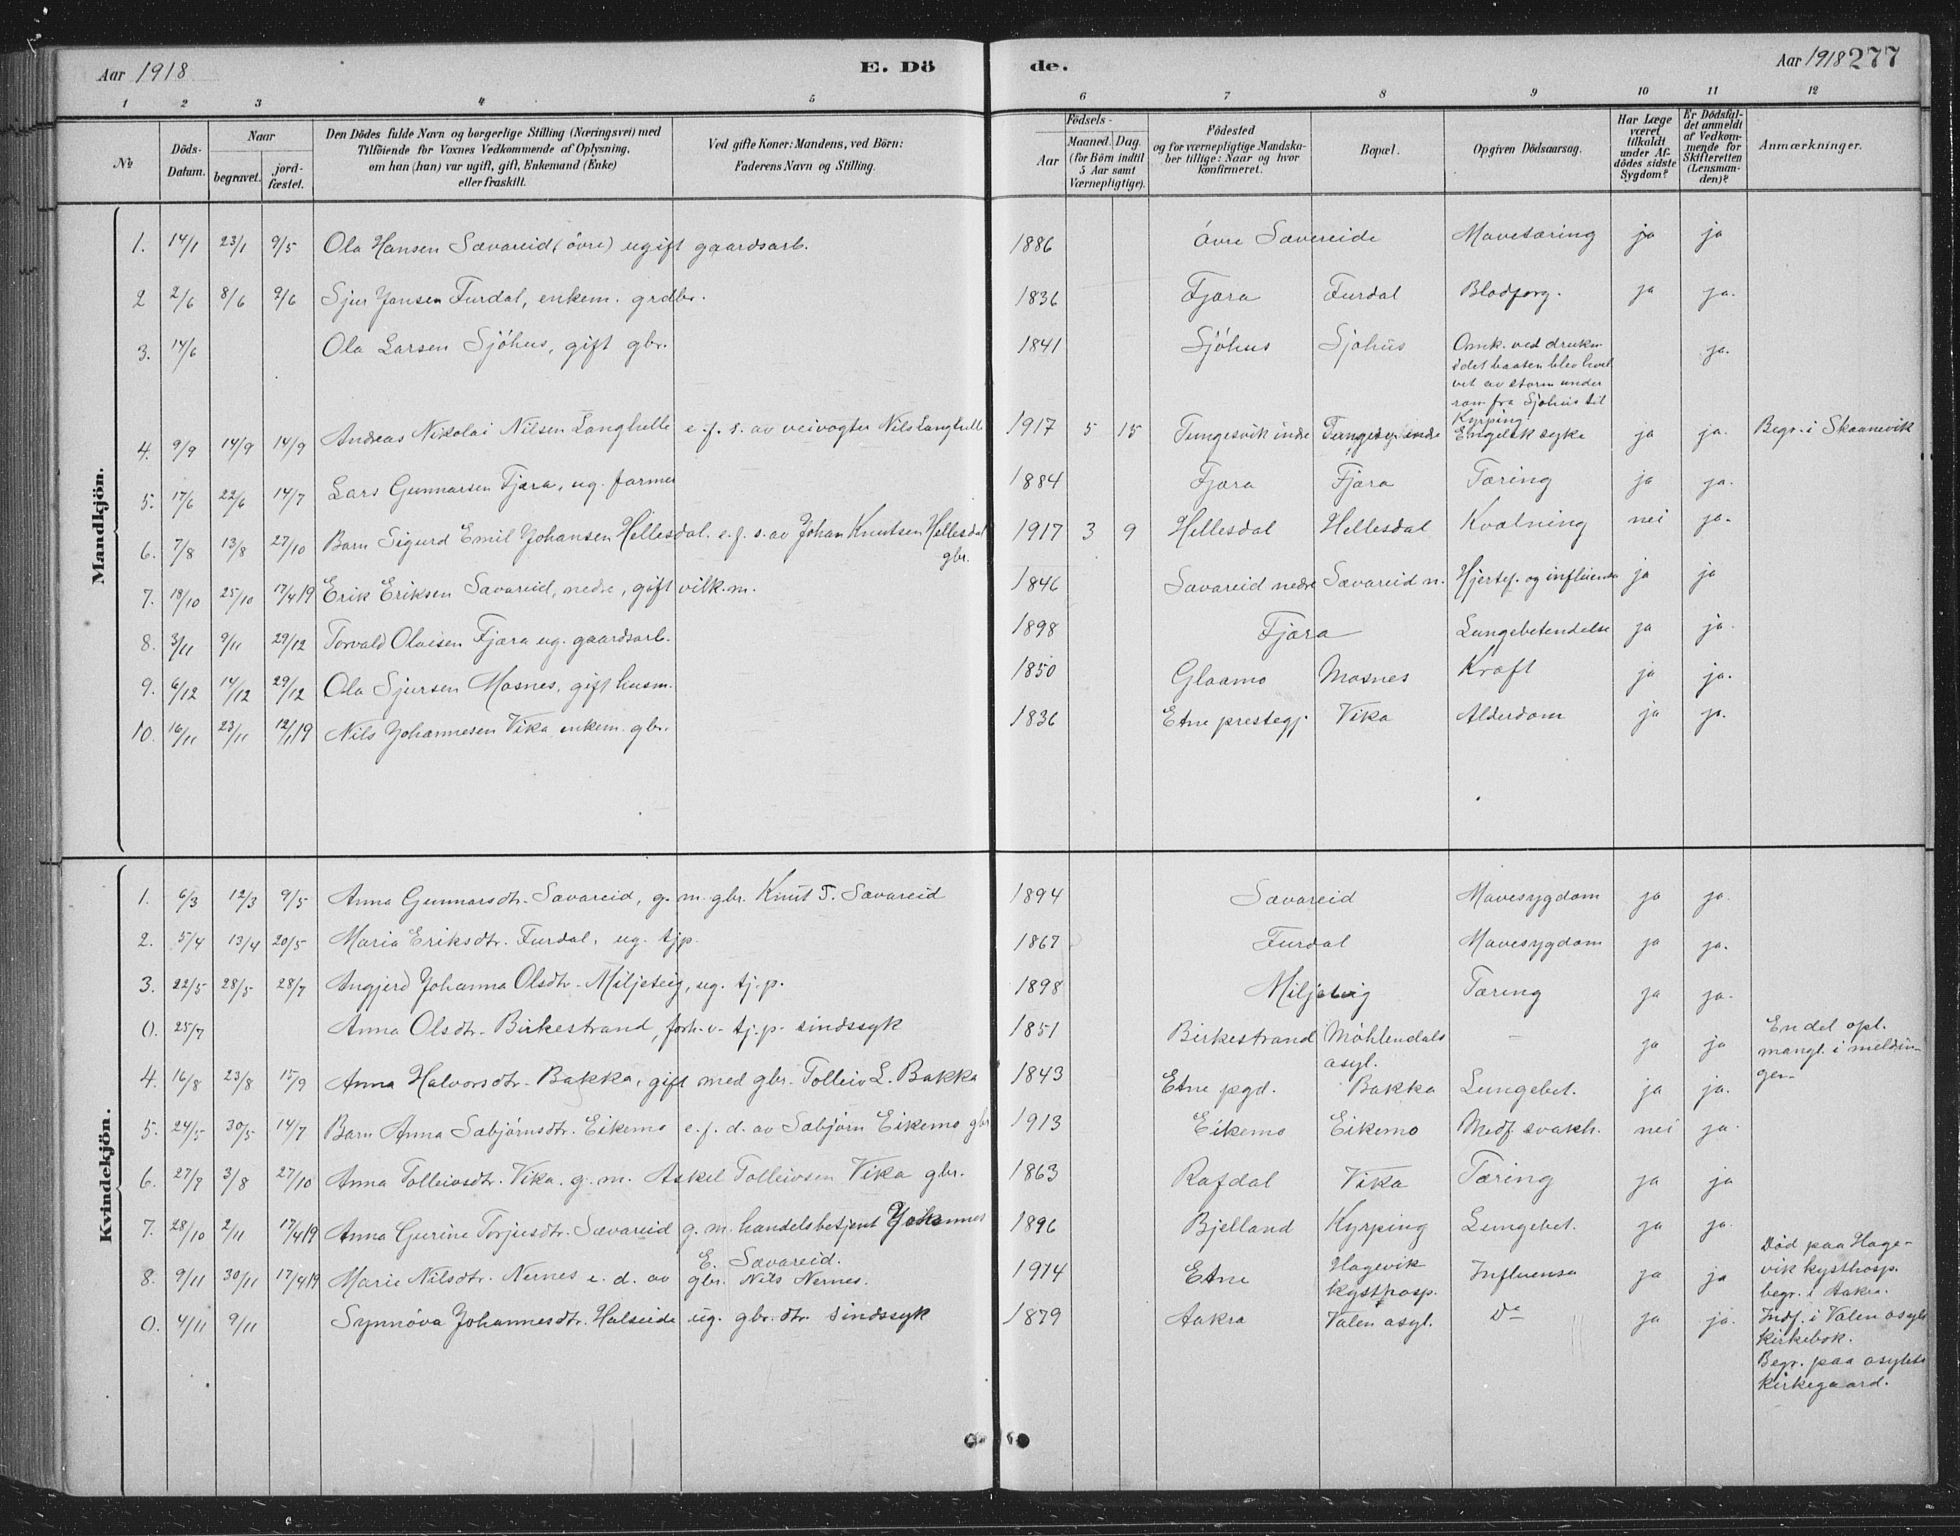 Aar 1918
E. Dö
de.
Aar 1918 277
1 2 3 4 5 6 7 8 9 10 11 12
No
Döds-
Datum.
Naar
begravet.
jord-
fæstet.
Den Dödes fulde Navn og borgerlige Stilling (Næringsvei) med
Tilföiende for Voxnes Vedkommende af Oplysning,
om han (hun) var ugift, gift, Enkemand (Enke)
eller fraskilt.
Ved gifte Koner: Mandens, ved Börn:
Faderens Navn og Stilling.
Födsels-
Aar
Maaned. Dag
(for Börn indtil
5 Aar samt
Værnepligtige).
Födested
og for værnepligtige Mandska-
ber tillige: Naar og hvor
konfirmeret.
Bopæl.
Opgiven Dödsaarsag.
Har Læge
været
tilkaldt
under Af-
dödes sidste
Sygdom?
Er Dödsfal-
det anmeldt
af Vedkom-
mende for
Skifteretten
(Lensman-
den)?
Anmærkninger.
Mandkjön.
1. 14/1 23/1 9/5 Ola Hansen Sævareid (övre) ugift gaardsarb. 1886 övre Sævereide Mavetæring ja ja
2 2/6 8/6 9/6 Sjur Jansen Furdal, enkem. grdbr. 1836 Fjæra Furdal Blodforg. ja ja.
3. 14/6 Ola Larsen Sjöhus, gift gbr. 1841 Sjöhus Sjöhus Omk. ved drukn
idet baaten blev hvel
vet av storm under
roen fra Sjöhus til
Kyrping ja.
4. 9/9 14/9 14/9 Andreas Nikolai Nilsen Langhelle e.f. s. av veivogter Nils Langhelle 1917 5 15 Tungesvik indre Tungesv. indre Engelsk syke ja ja. Begr. i Skaanevik
5. 17/6 22/6 14/7 Lars Gunnarsen Fjæra, ug. farmer 1884 Fjæra Fjæra Tæring ja ja.
6. 7/8 13/8 27/10 Barn Sigurd Emil Johansen Hellesdal. e.f. s. av Johan Knutsen Hellesdal
gbr. 1917 3 9 Hellesdal Hellesdal Kvælning nei ja.
7. 18/10 25/10 17/4 19 Erik Eriksen Sævareid, nedre, gift vilk.m. 1846 Sævareid nedre Sævareid n. Hjertef. og influensa ja ja
8. 3/11 9/11 29/12 Torvald Olaisen Fjæra ug. gaardsarb. 1898 Fjæra Lungebetendelse ja ja.
9. 6/12 14/12 29/12 Ola Sjursen Mosnes, gift husm. 1850 Glaamo Mosnes Kræft ja ja.
10. 16/11 23/11 12/1 19 Nils Johannesen Vika enkem. gbr. 1836 Etne prestegj. Vika Alderdom ja ja.
Kvindekjön.
1. 6/3 12/3 9/5 Anna Gunnarsdtr. Sævareid, g. m. gbr. Knut T. Sævareid 1894 Sævareid Mavesygdom ja ja.
2. 5/4 13/4 20/5 Maria Eriksdtr. Furdal, ug. tjp. 1867 Furdal Mavesygdom ja ja.
3. 22/5 28/5 28/7 Angjerd Johanna Olsdtr. Miljeteig, ug. tj.p. 1898 Miljeteig Tæring ja ja.
0. 25/7 Anna Olsdtr. Birkestrand, forh.v. tj.p. sindssyk 1851 Birkestrand Möhlendals
asyl. – ja ja En del opl.
mangl. i meldin-
gen.
4. 16/8 23/8 15/9 Anna Halvorsdtr. Bakka, gift med gbr. Tolleiv L. Bakka 1843 Etne pgd. Bakka Lungebet. ja ja.
5. 24/5 30/5 14/7 Barn Anna Sæbjörnsdtr. Eikemo e.f. d. av Sæbjörn Eikemo gbr 1913 Eikemo Eikemo Medf. svakh. nei ja.
6. 27/7 3/8 27/10 Anna Tolleivsdtr. Vika. g. m. Askel Tolleivsen Vika gbr. 1863 Rafdal Vika Tæring ja ja
7. 28/10 2/11 17/4 19 Anna Gurine Torjusdtr. Sævareid g. m. handelsbetjent Johannes
E. Sævareid. 1896 Bjelland Kyrping Lungebet. ja ja.
8. 9/11 30/11 17/4 19 Marie Nilsdtr. Nernes e. d. av gbr. Nils Nernes. 1914 Etne Hagevik
kysthosp. Influensa ja ja Död paa Hage-
vik kysthosp.
begr. i Aakra.
0. 4/11 9/11 Synnöva Johannesdtr. Halseide ug. gbr. dtr. sindssyk 1879 Aakra Valen asyl. Do ja ja. Indf. i Valen asyls
kirkebok.
Begr. paa asylets
kirkegaard.